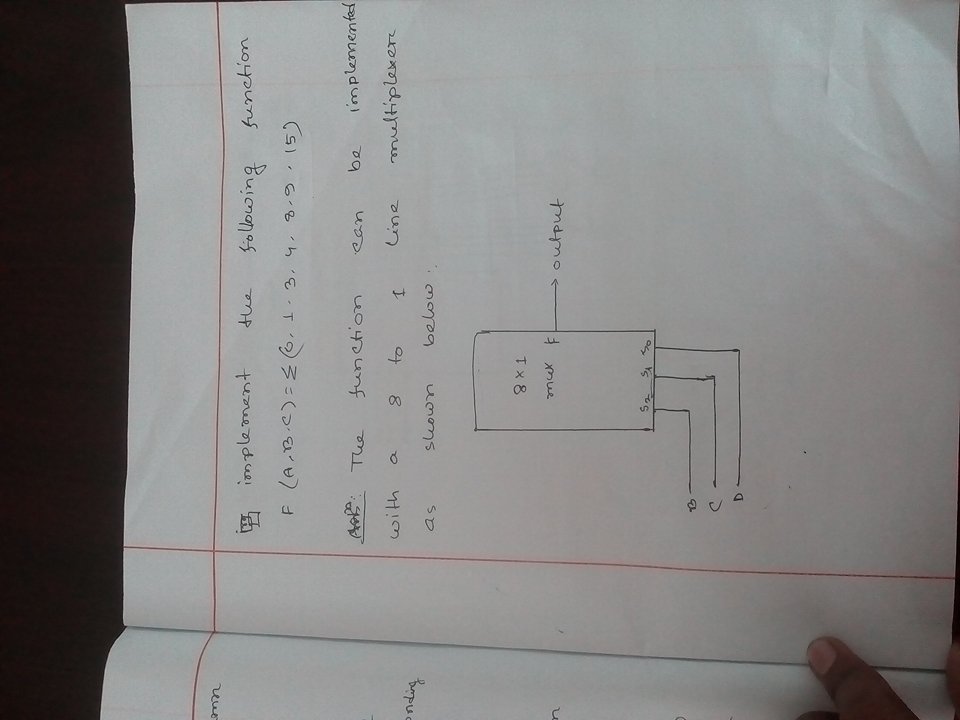 implement the following function
F (A, B, C) = Σ (0, 1, 3, 4, 8, 9, 15)
Ans: The function can be implemented
with a 8 to 1 line multiplexer
as shown below.
8 × 1
mux F → output
S2 S1 S0
B
C
D
onding